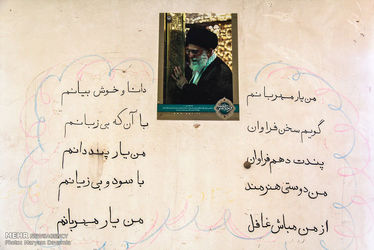 من یار مهربانم
دانا و خوش بیانم
گویم سخن فراوان
با آن که بی زبانم
پندت دهم فراوان
من یار پند دانم
من دوستی هنرمند
با سود و بی زیانم
از من مباش غافل
من یار مهربانم
MEHR NEWS AGENCY
Photo: Maryam Davarnia